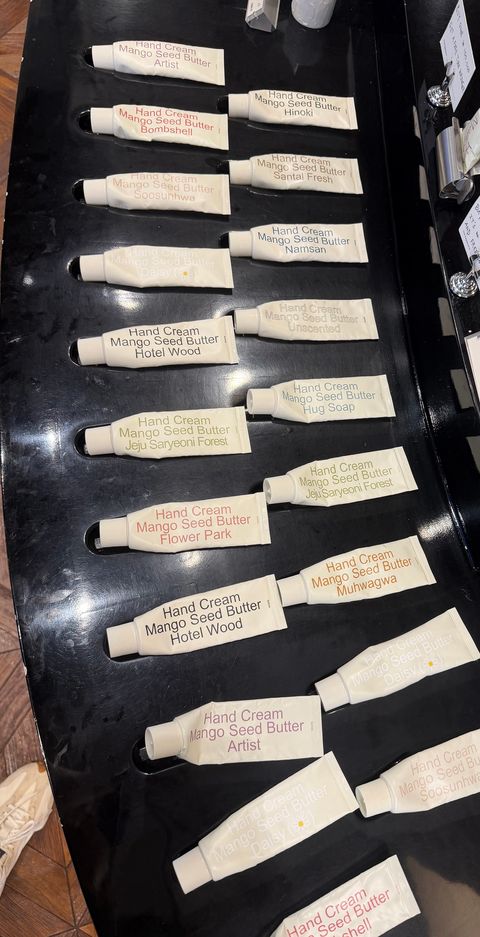 Hand Cream
Mango Seed Butter
Artist
Hand Cream
Mango Seed Butter
Hinoki
Hand Cream
Mango Seed Butter
Bombshell
Hand Cream
Mango Seed Butter
Santal Fresh
Hand Cream
Mango Seed Butter
Soosunhwa
Hand Cream
Mango Seed Butter
Namsan
Hand Cream
Mango Seed Butter
Daisy
Hand Cream
Mango Seed Butter
Unscented
Hand Cream
Mango Seed Butter
Hotel Wood
Hand Cream
Mango Seed Butter
Hug Soap
Hand Cream
Mango Seed Butter
Jeju Saryeoni Forest
Hand Cream
Mango Seed Butter
Jeju Saryeoni Forest
Hand Cream
Mango Seed Butter
Flower Park
Hand Cream
Mango Seed Butter
Muhwagwa
Hand Cream
Mango Seed Butter
Hotel Wood
Hand Cream
Mango Seed Butter
Daisy
Hand Cream
Mango Seed Butter
Artist
Hand Cream
Mango Seed Bu
Soosunhwa
Hand Cream
Mango Seed Butter
Daisy
Hand Cream
Mango Seed Butter
shell